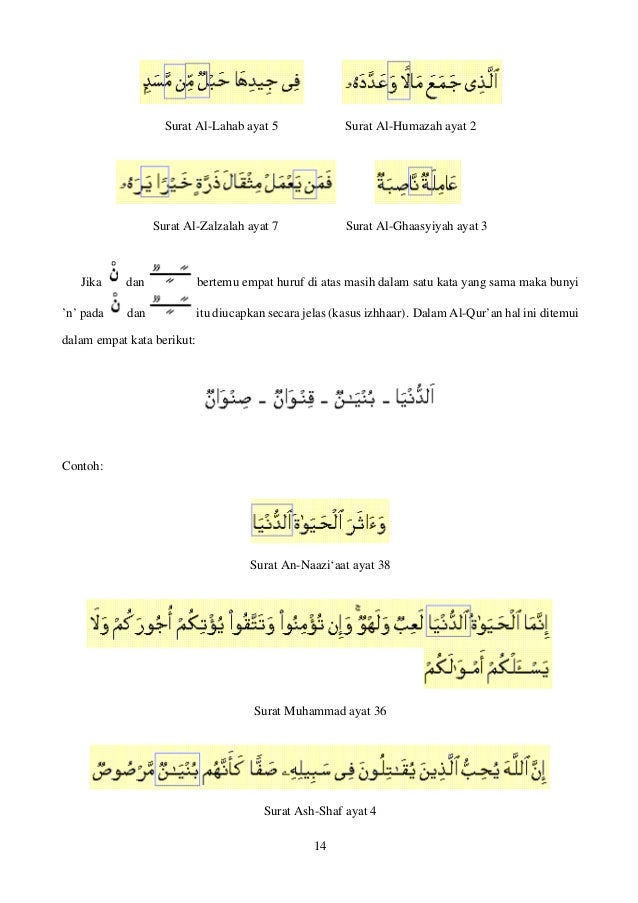 فِى جِيدِهَا حَبْلٌ مِّن مَّسَدٍۭ
ٱلَّذِى جَمَعَ مَالًا وَعَدَّدَهُۥ
Surat Al-Lahab ayat 5
Surat Al-Humazah ayat 2
فَمَن يَعْمَلْ مِثْقَالَ ذَرَّةٍ خَيْرًا يَرَهُۥ
عَامِلَةٌ نَّاصِبَةٌ
Surat Al-Zalzalah ayat 7
Surat Al-Ghaasyiyah ayat 3
Jika نْ dan ـًـٍـٌ bertemu empat huruf di atas masih dalam satu kata yang sama maka bunyi
’n’ pada نْ dan ـًـٍـٌ itu diucapkan secara jelas (kasus izhhaar). Dalam Al-Qur’an hal ini ditemui
dalam empat kata berikut:
اَلدُّنْيَا - بُنْيَـٰنٌ - قِنْوَانٌ - صِنْوَانٌ
Contoh:
وَءَاثَرَ ٱلْحَيَوٰةَ ٱلدُّنْيَا
Surat An-Naazi‘aat ayat 38
إِنَّمَا ٱلْحَيَوٰةُ ٱلدُّنْيَا لَعِبٌ وَلَهْوٌ ۚ وَإِن تُؤْمِنُوا۟ وَتَتَّقُوا۟ يُؤْتِكُمْ أُجُورَكُمْ وَلَا
يَسْـَٔلْكُمْ أَمْوَٰلَكُمْ
Surat Muhammad ayat 36
إِنَّ ٱللَّهَ يُحِبُّ ٱلَّذِينَ يُقَـٰتِلُونَ فِى سَبِيلِهِۦ صَفًّا كَأَنَّهُم بُنْيَـٰنٌ مَّرْصُوصٌ
Surat Ash-Shaf ayat 4
14